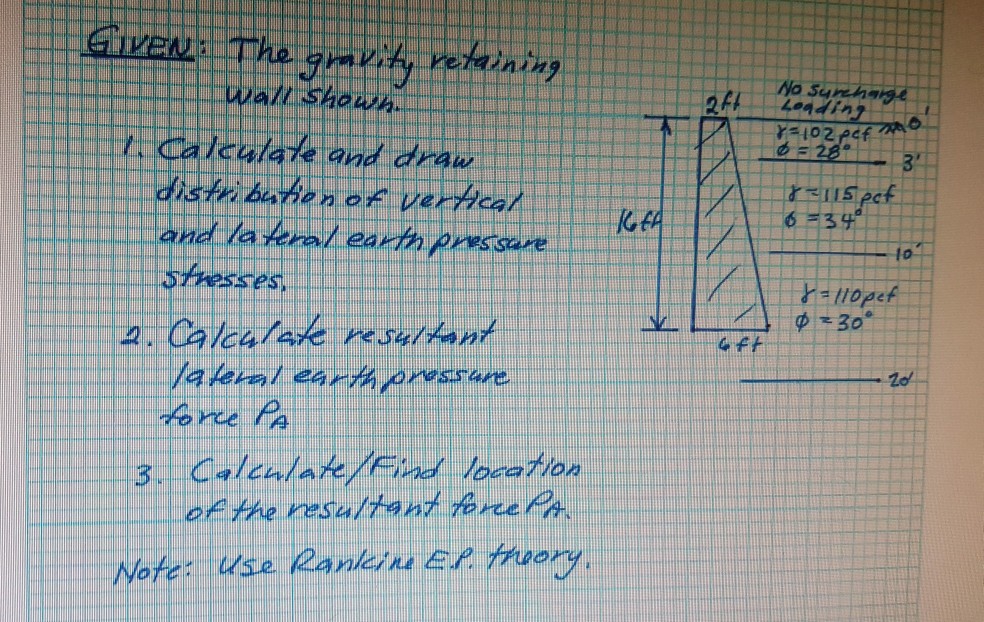 GIVEN: The gravity retaining
wall shown.
1. Calculate and draw
distribution of vertical
and lateral earth pressure
stresses.
2. Calculate resultant
lateral earth pressure
force PA
3. Calculate/Find location
of the resultant force PA.
Note: Use Rankine E.P. theory.
No Surcharge
Loading
2ft
0'
γ=102 pcf
φ=28°
3'
γ=115 pcf
φ=34°
16ft
10'
γ=110pcf
φ=30°
6ft
20'